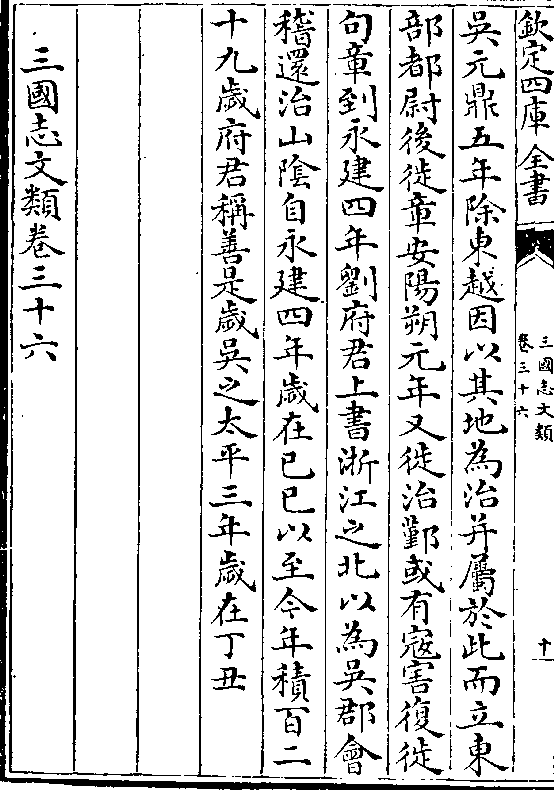 欽定四庫全書
三國志文類
卷三十六
十
吳元鼎五年除東越因以其地為治并屬於此而立東
部都尉後徙章安陽朔元年又徙治鄞或有寇害復徙
句章到永建四年劉府君上書浙江之北以為吳郡會
稽還治山陰自永建四年歲在己巳以至今年積百二
十九歲府君稱善是歲吳之太平三年歲在丁丑
三國志文類卷三十六